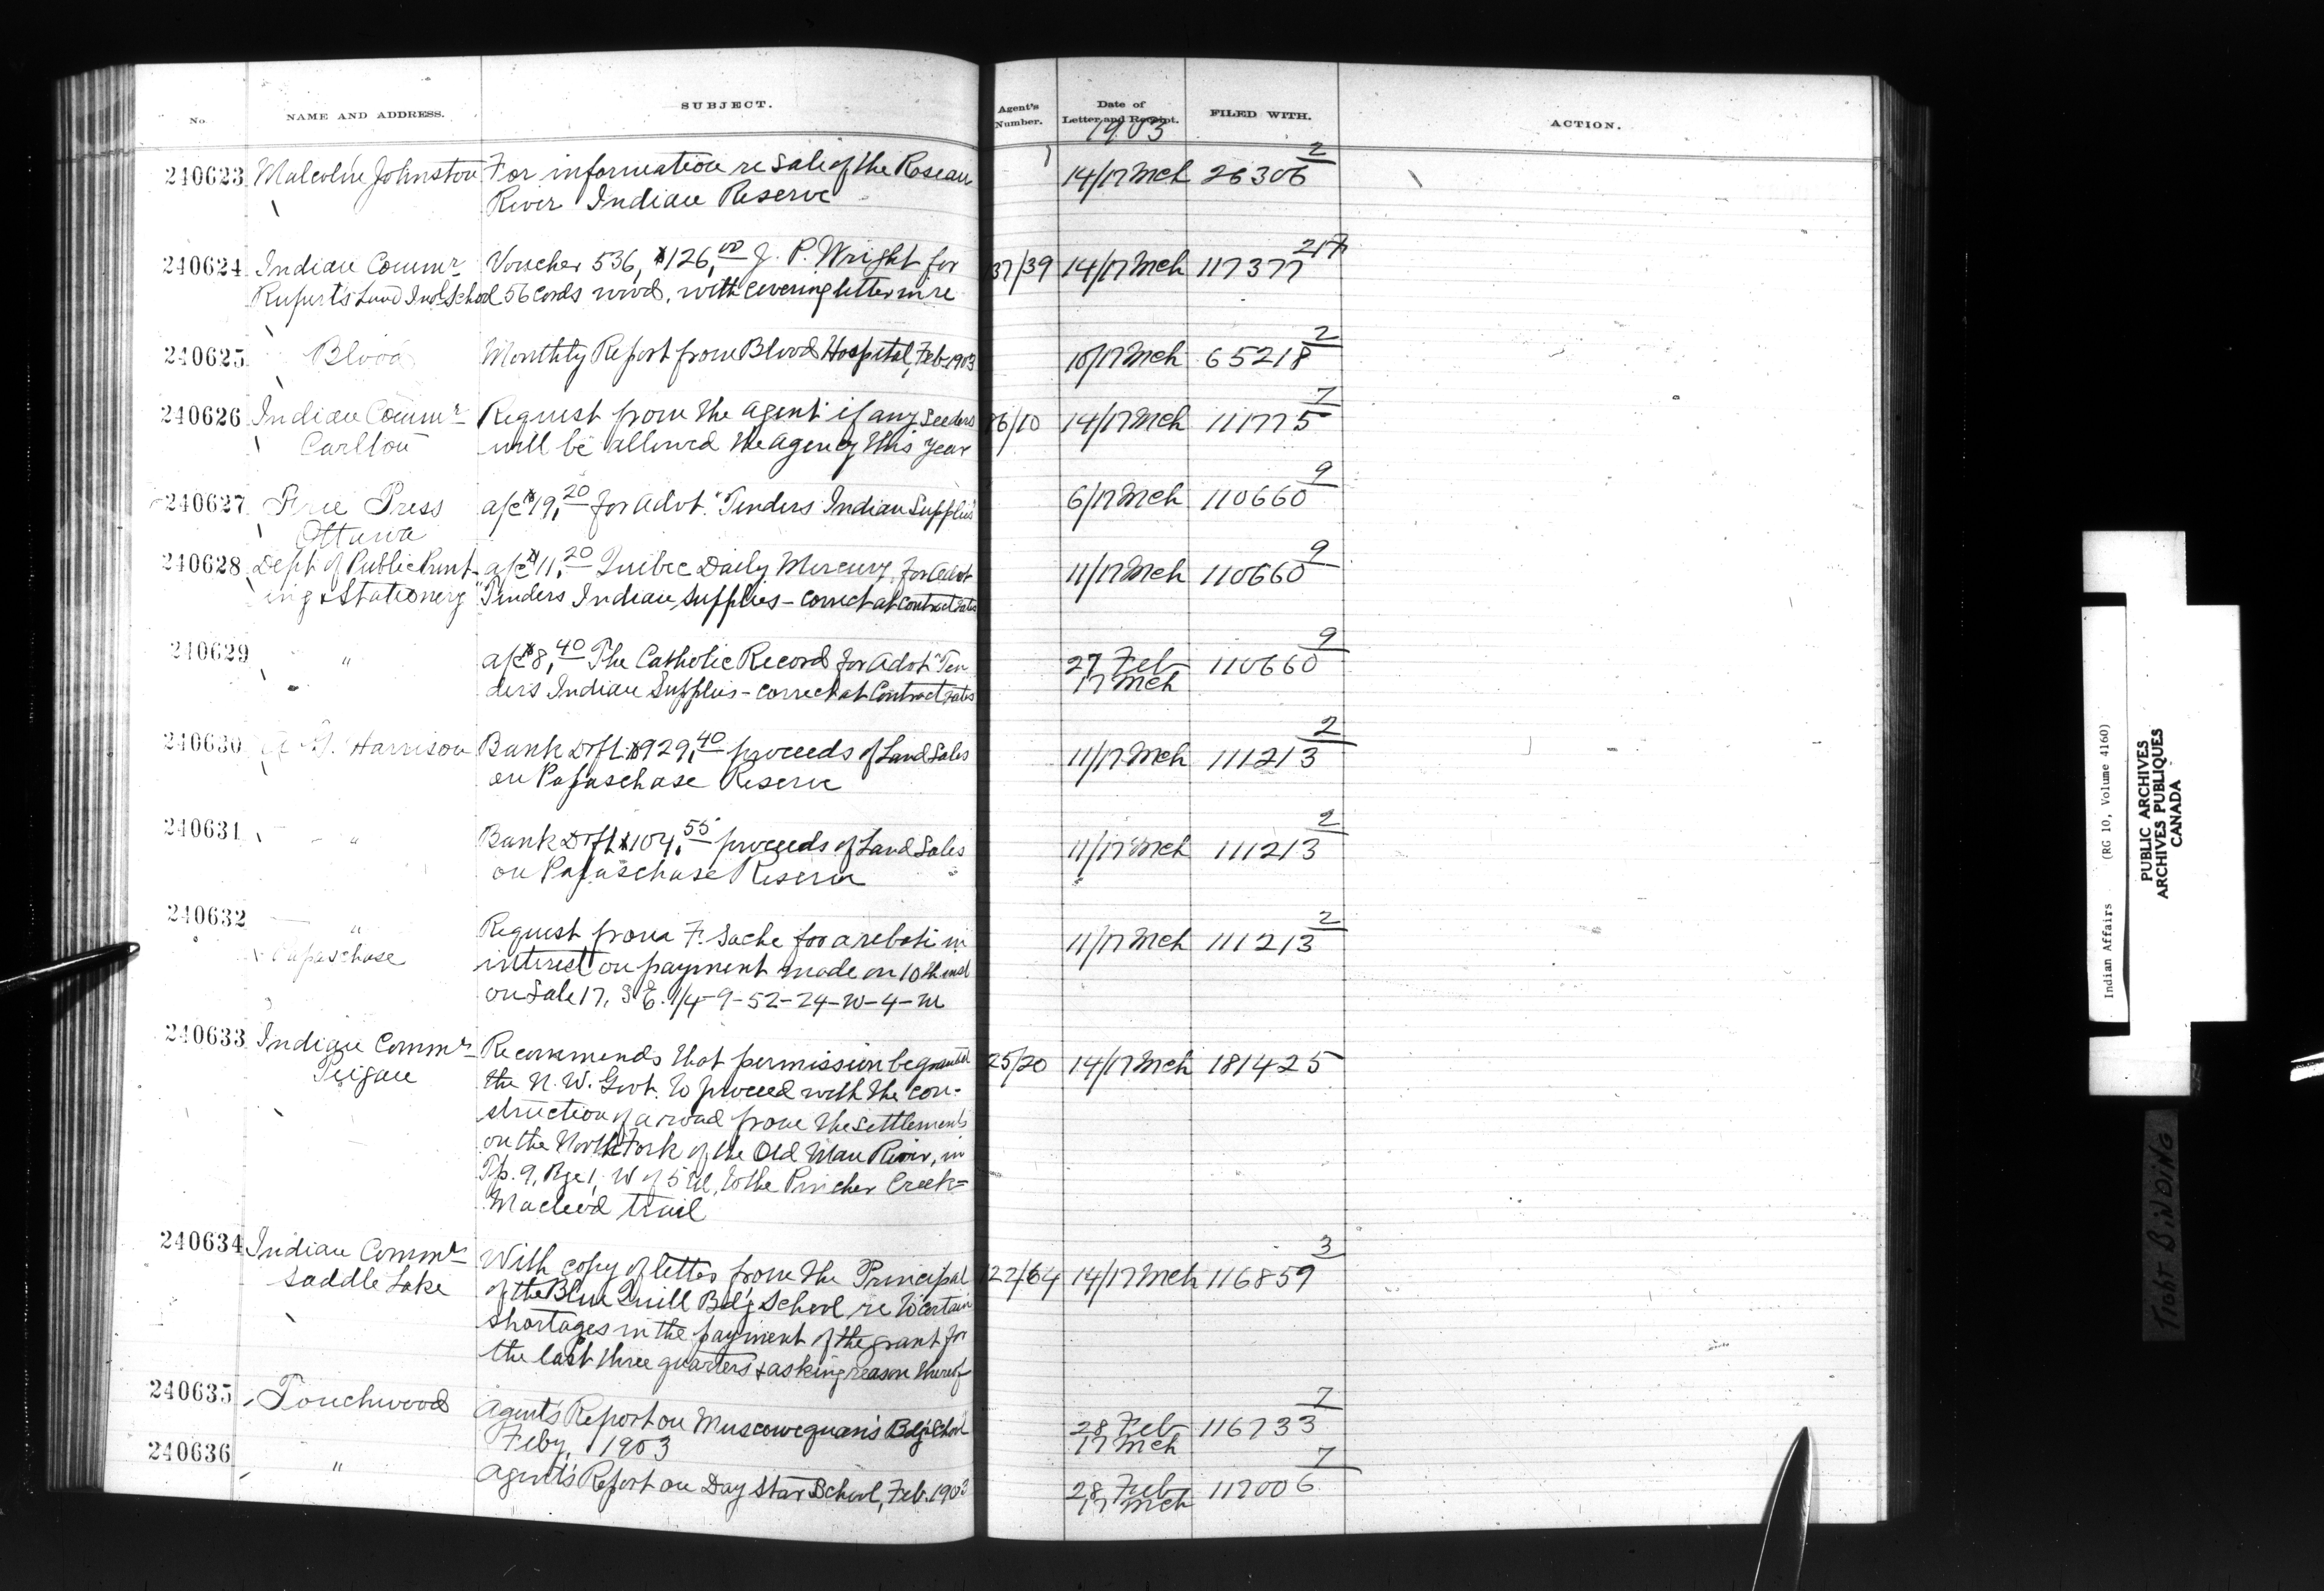 No. NAME AND ADDRESS. SUBJECT. Agent's Number. Date of Letter and Receipt. FILED WITH. ACTION.
1903
240623 Malcolm Johnston For information re sale of the Roseau 14/17 Mch 26306 2
River Indian Reserve
240624 Indian Commr Voucher 536, $126.00 J. P. Wright for 37/39 14/17 Mch 117377 217
Rupert's Land Indl School 56 Cords wood, with covering letter in re
240625 Blood Monthly Report from Blood Hospital, Feb 1903 10/17 Mch 65218 2
240626 Indian Commr Request from the Agent if any seeders 26/10 14/17 Mch 111775 7
Carlton will be allowed the agency this year
240627 Free Press a/c $19.20 for advt. "Tenders Indian Supplies 6/17 Mch 110660 9
Ottawa
240628 Dept of Public Print- a/c $11.20 Quebec Daily Mercury for advt 11/17 Mch 110660 9
ing & Stationery "Tenders Indian Supplies - correct at contract rates
240629 " a/c $8.40 The Catholic Record for advt "Ten 27 Feb 110660 9
ders Indian Supplies - correct at Contract rates 17 Mch
240630 Harrison Bank Dft $929.40 proceeds of Land Sales 11/17 Mch 111213 2
on Papaschase Reserve
240631 " Bank Dft $104.55 proceeds of Land Sales 11/17 Mch 111213 2
on Papaschase Reserve
240632 " Request from F. Sache for a rebate in 11/17 Mch 111213 2
Papaschase interest on payment made on 10th inst
on Sale 17, S E. 1/4-9-52-24-W-4-M
240633 Indian Commr Recommends that permission be granted 25/20 14/17 Mch 181425
Peigan the N. W. Govt. to proceed with the con-
struction of a road from the settlements
on the North Fork of the Old Man River, in
Tp. 9, Rge 1, W of 5 M, to the Pincher Creek=
Macleod trail
240634 Indian Commr With copy of letter from the Principal 122/64 14/17 Mch 116859 3
Saddle Lake of the Blue Quill Bdg School re to certain
shortages in the payment of the grant for
the last three quarters & asking reason thereof
240635 Touchwood Agent's Report on Muscowequan's Bdg School 28 Feb 116733 7
Feby, 1903 17 Mch
240636 " Agent's Report on Day Star School, Feb. 1903 28 Feb 117006 7
17 Mch
Indian Affairs (RG 10, Volume 4160)
PUBLIC ARCHIVES
ARCHIVES PUBLIQUES
CANADA
TIGHT BINDING